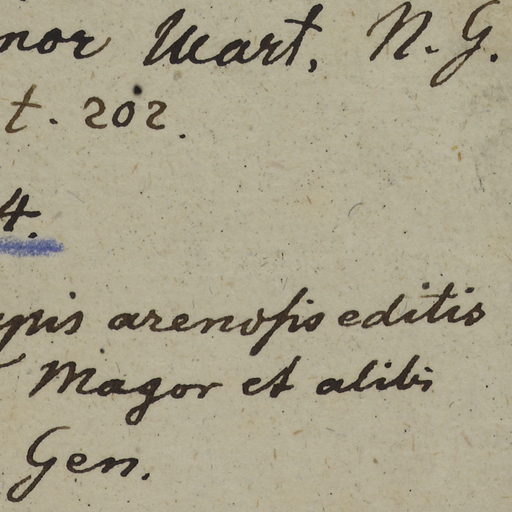 nor Wart, N. G.
t. 202.
4.
pis arenosis editis
Magor et alibi
Gen.